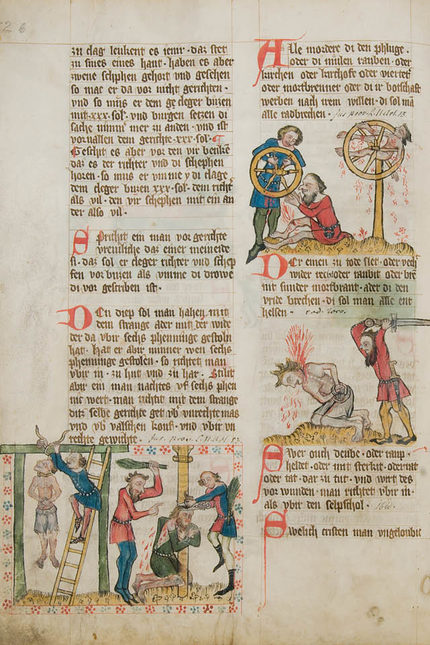 zu clag leukent es iemr · daz stet
zu sines eines hant · haben es aber
zwene schphen gehort vnd gesehen
so mac er da vor nicht gerichten ·
vnd so mus er dem cleger buzen
mit · xxx · sol · vnd burgen setzen di
sache nimm mer zu anden · vnd ist
vor vallen dem gerichte · xxx · sol ·
Geschit es aber vor den vir benken
daz es der richter vnd di schephen
horen · so mus er vmme y di clage
dem cleger buzen xxx · sol · dem richt
als vil · den vir schephen mit ein an
der also vil ·
Spricht ein man vor gerichte
vreueliche daz einer meineide
si · daz sol er cleger richter vnd schep
fen vor buzen als vmme di drowe
di vor geschriben ist ·
Den diep sol man hahen mit
dem strange ader mit der wide
der da vbir sechs phenninge gestoln
hat · Hat er abir minner wen sechs
phenninge gestolen · so richtet man
vbir in · zu hut vnd zu har · Stilt
abir ein man nachtes vf sechs phen
nie wert · man richtet mit dem strange
vnd vb valschen kouf · vnd vbir vn
rechte gewichte ·
Alle mordere di den phluge ·
oder di mulen rauben · oder
kirchen oder kirchofe oder vierter
oder mortbrenner oder di ir botschaft
werben nach irem willen · di sol man
alle radbrechen ·
Der einen zu tode slet · oder vech
wider recht oder raubit oder bre
nit sunder mortbrant · oder di den
vride brechen · di sol man alle ent
helsen ·
Swer ouch deube · oder roup ·
heldet · oder mit sterkit · oder rat
oder tat · dar zu tut · vnd wirt des
vor wunden · man richtet vbir in ·
als vbir den selpschol ·
Swelich cristen man vngeloubic